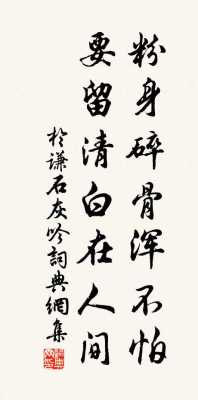 粉身碎骨浑不怕
要留清白在人间
於谦石灰吟詞典網集